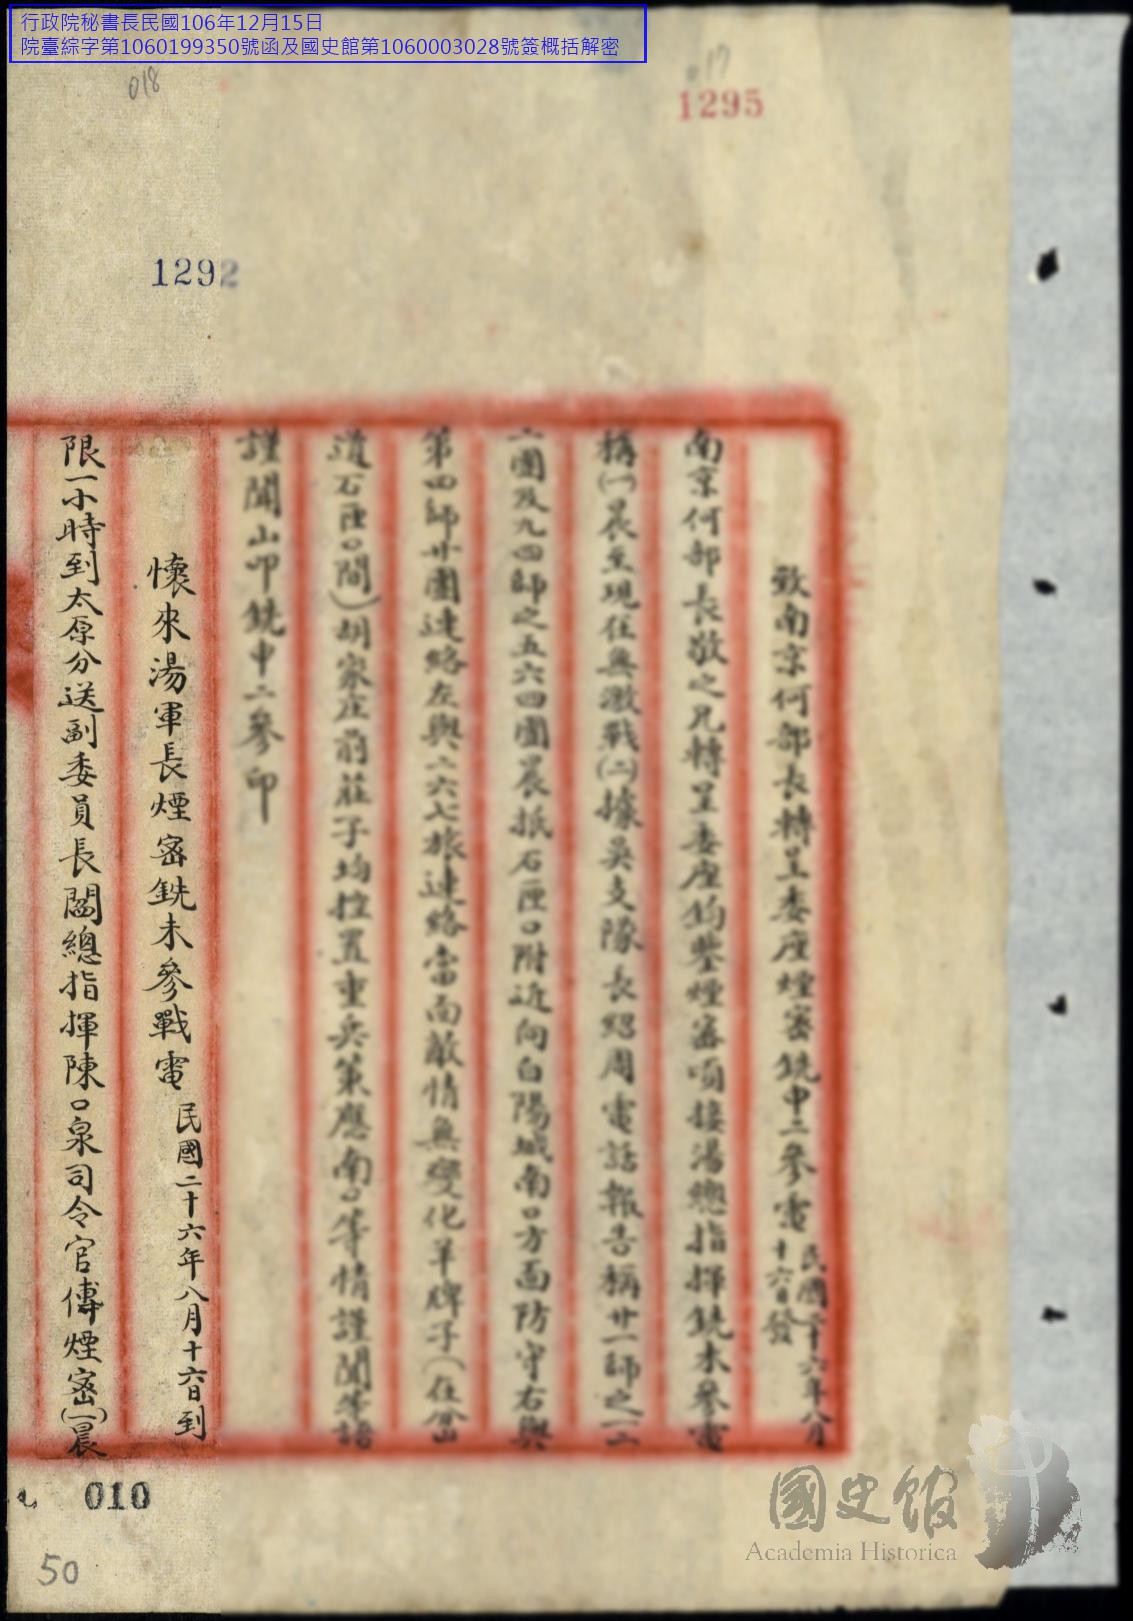 行政院秘書長民國106年12月15日
院臺綜字第1060199350號函及國史館第1060003028號簽概括解密
018
017
1295
1292
致南京何部長轉呈委座煙密銑申二參電 民國二十六年八月十六日發
南京何部長敬之兄轉呈委座鈞鑒煙密頃接湯總指揮銑未參電
稱(一)晨至現在無激戰(二)據吳支隊長紹周電話報告稱廿一師之一二
一團及九四師之五六四團晨抵石匣口附近向白陽城南口方面防守右與
第四師廿團連絡左與二六七旅連絡當面敵情無變化羊牌子(在岔
道石匣口間)胡家庄前莊子均控置重兵策應南口等情謹聞等語
謹聞山叩銑申二參印
懷來湯軍長煙密銑未參戰電 民國二十六年八月十六日到
限一小時到太原分送副委員長閻總指揮陳口泉司令官傅煙密(一)晨
010
50
國史館
Academia Historica